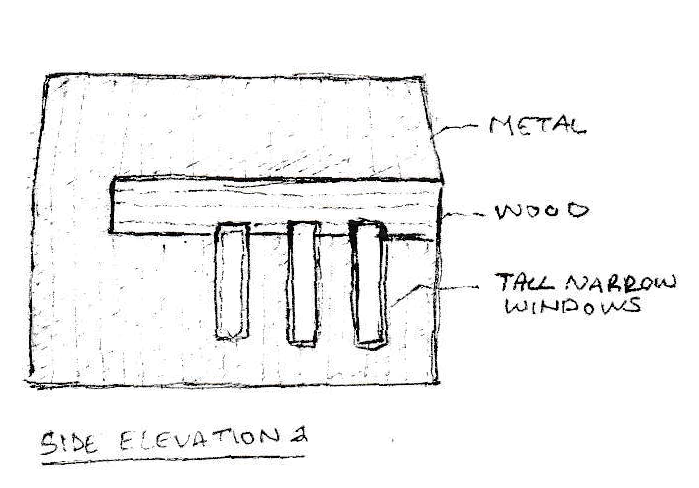 METAL
WOOD
TALL NARROW
WINDOWS
SIDE ELEVATION 2